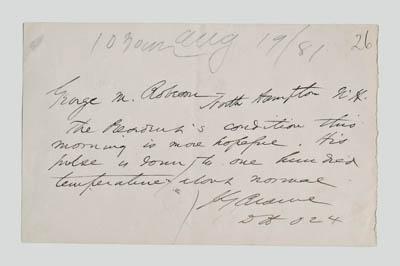 1030am Aug 19/81 26
George M. Osborn North Hampton N.H.
The President's condition this
morning is more hopeful. His
pulse is down to one hundred
temperature about normal
D H 024